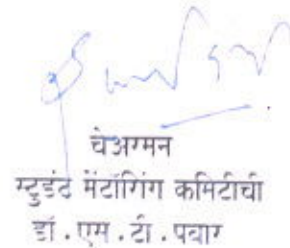 चेअरमन
स्टुडंट मेंटॉरिंग कमिटीची
डॉ.एस.टी.पवार